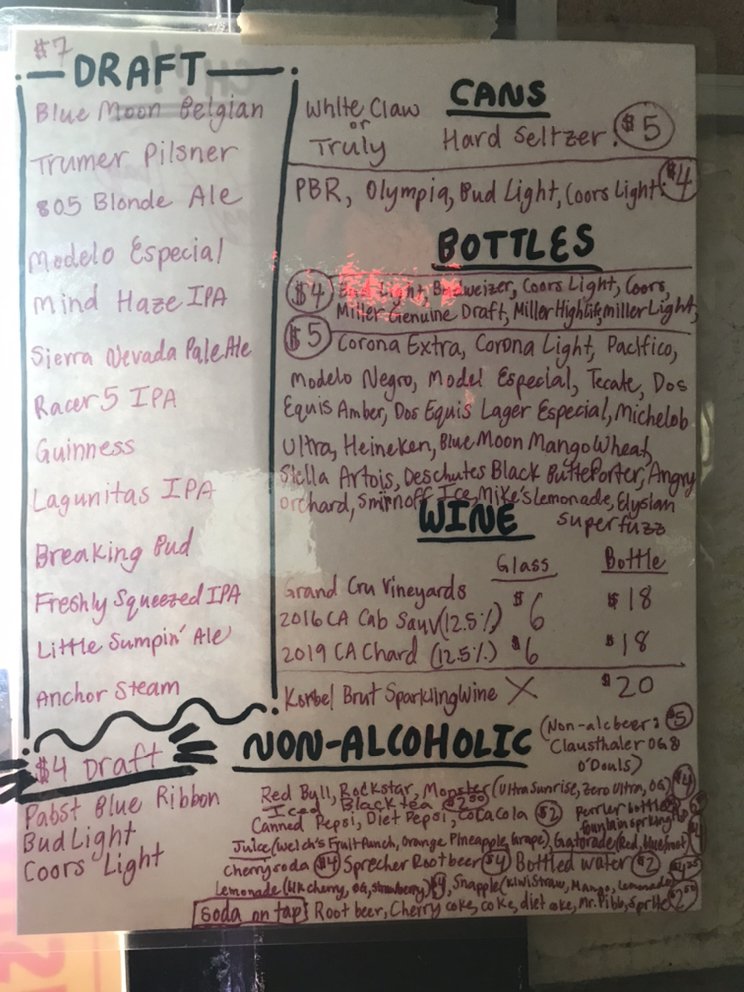 $7
DRAFT
Blue Moon Belgian
Trumer Pilsner
805 Blonde Ale
Modelo Especial
Mind Haze IPA
Sierra Nevada Pale Ale
Racer 5 IPA
Guinness
Lagunitas IPA
Breaking Bud
Freshly Squeezed IPA
Little Sumpin' Ale
Anchor Steam
$4 Draft
Pabst Blue Ribbon
Bud Light
Coors Light
CANS
White Claw
or
Truly
Hard Seltzer: $5
PBR, Olympia, Bud Light, Coors Light: $4
BOTTLES
$4 Bud Light, Budweizer, Coors Light, Coors,
Miller Genuine Draft, Miller High Life, miller Light,
$5 Corona Extra, Corona Light, Pacifico,
Modelo Negro, Model Especial, Tecate, Dos
Equis Amber, Dos Equis Lager Especial, Michelob
Ultra, Heineken, Blue Moon Mango Wheat,
Stella Artois, Deschutes Black Butte Porter, Angry
orchard, Smirnoff Ice, Mike's Lemonade, Elysian
superfuzz
WINE
Glass Bottle
Grand Cru Vineyards
2016 CA Cab Sauv (12.5%) $6 $18
2019 CA Chard (12.5%) $6 $18
Korbel Brut Sparkling Wine X $20
NON-ALCOHOLIC
(Non-alc beer: $5
Clausthaler OG &
O'Douls)
Red Bull, Rockstar, Monster (Ultra Sunrise, Zero Ultra, OG) $4
Iced Black tea $2.00
Canned Pepsi, Diet Pepsi, Coca Cola $2
Perrier bottle
Juice (Welch's Fruit Punch, Orange Pineapple, Grape) Gatorade (Red, blue,
Cherry soda $4 Sprecher Root beer $4 Bottled water $2
Lemonade (blk cherry, OG, strawberry) $4, Snapple (Kiwi Straw, Mango, Lemonade)
soda on tap: Root beer, Cherry coke, coke, diet coke, Mr. Pibb, Sprite $2.50